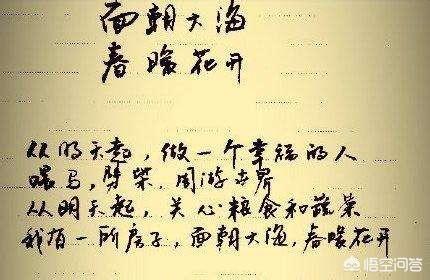 面朝大海
春暖花开
从明天起，做一个幸福的人
喂马，劈柴，周游世界
从明天起，关心粮食和蔬菜
我有一所房子，面朝大海，春暖花开
悟空问答